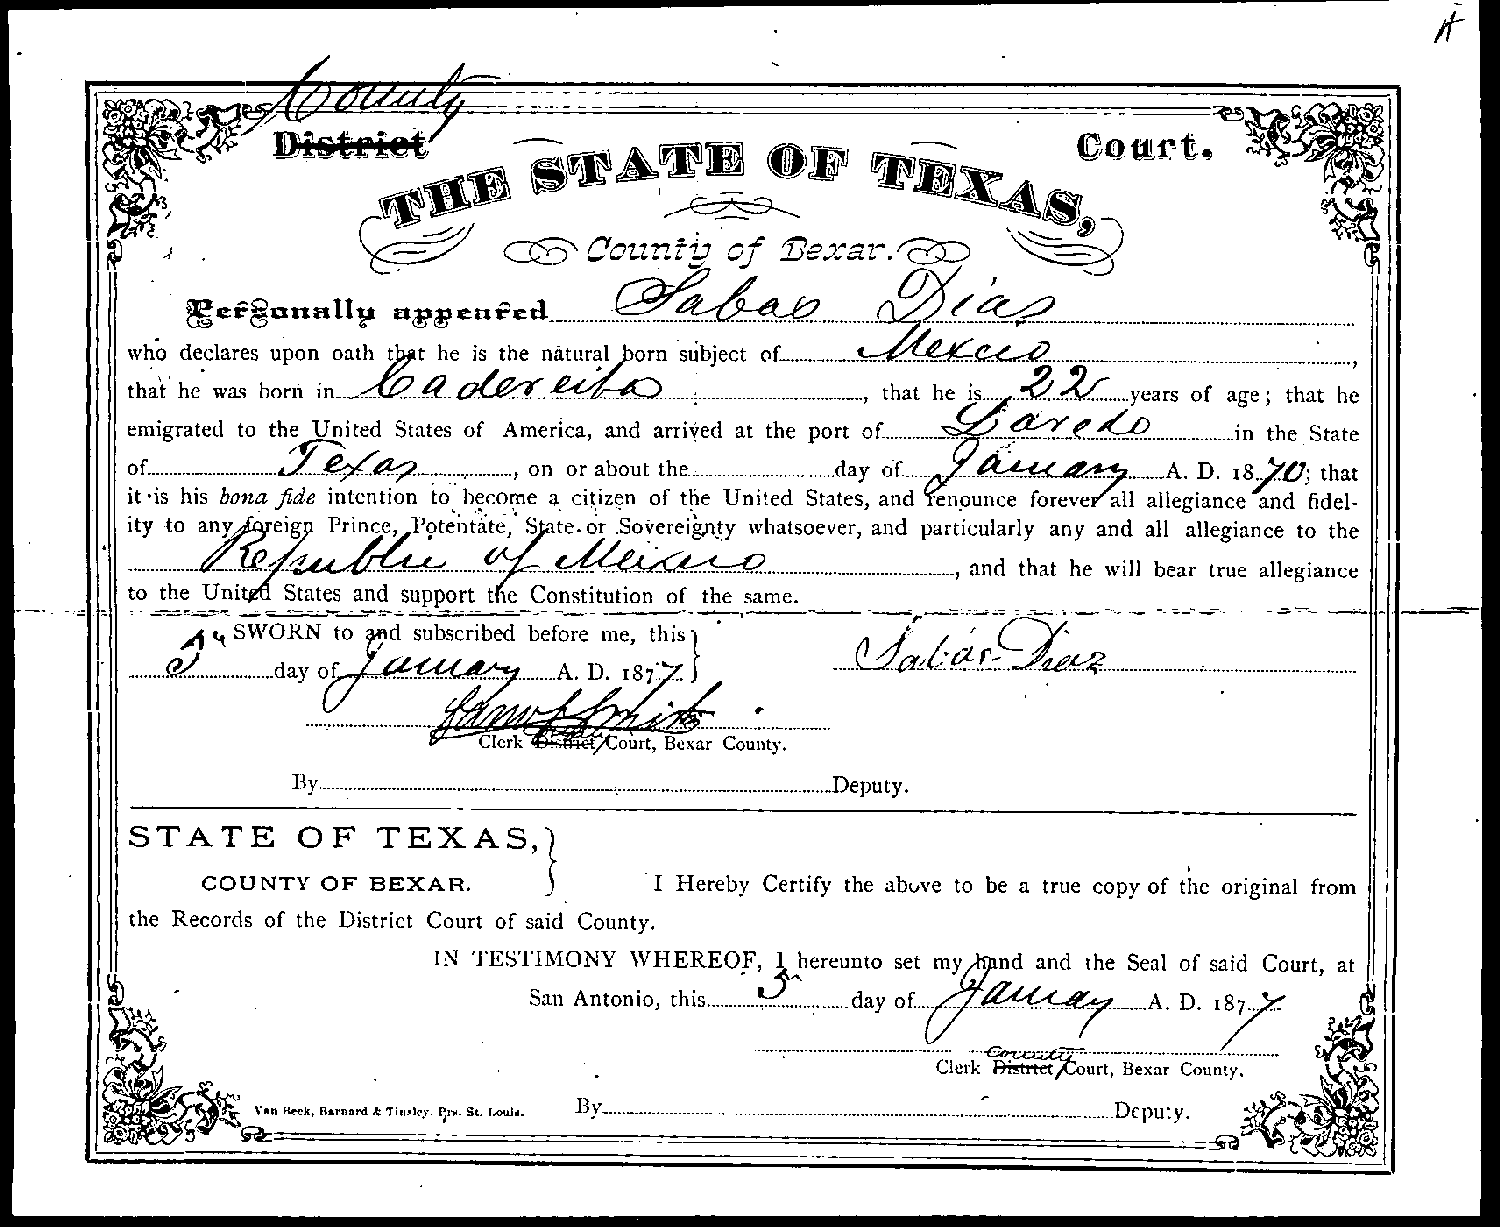 A
County
District Court.
THE STATE OF TEXAS,
County of Bexar.
Personally appeared Sabas Dias
who declares upon oath that he is the natural born subject of Mexico,
that he was born in Cadereita, that he is 22 years of age; that he
emigrated to the United States of America, and arrived at the port of Laredo in the State
of Texas, on or about the day of January A. D. 1870; that
it is his bona fide intention to become a citizen of the United States, and renounce forever all allegiance and fidel-
ity to any foreign Prince, Potentate, State or Sovereignty whatsoever, and particularly any and all allegiance to the
Republic of Mexico, and that he will bear true allegiance
to the United States and support the Constitution of the same.
SWORN to and subscribed before me, this
5th day of January A. D. 1877. Sabás Diaz
Smith
Clerk District Court, Bexar County.
By Deputy.
STATE OF TEXAS,
COUNTY OF BEXAR. I Hereby Certify the above to be a true copy of the original from
the Records of the District Court of said County.
IN TESTIMONY WHEREOF, I hereunto set my hand and the Seal of said Court, at
San Antonio, this 5 day of January A. D. 1877
County
Clerk District Court, Bexar County.
Van Beek, Barnard & Tinsley. Prs. St. Louis. By Deputy.